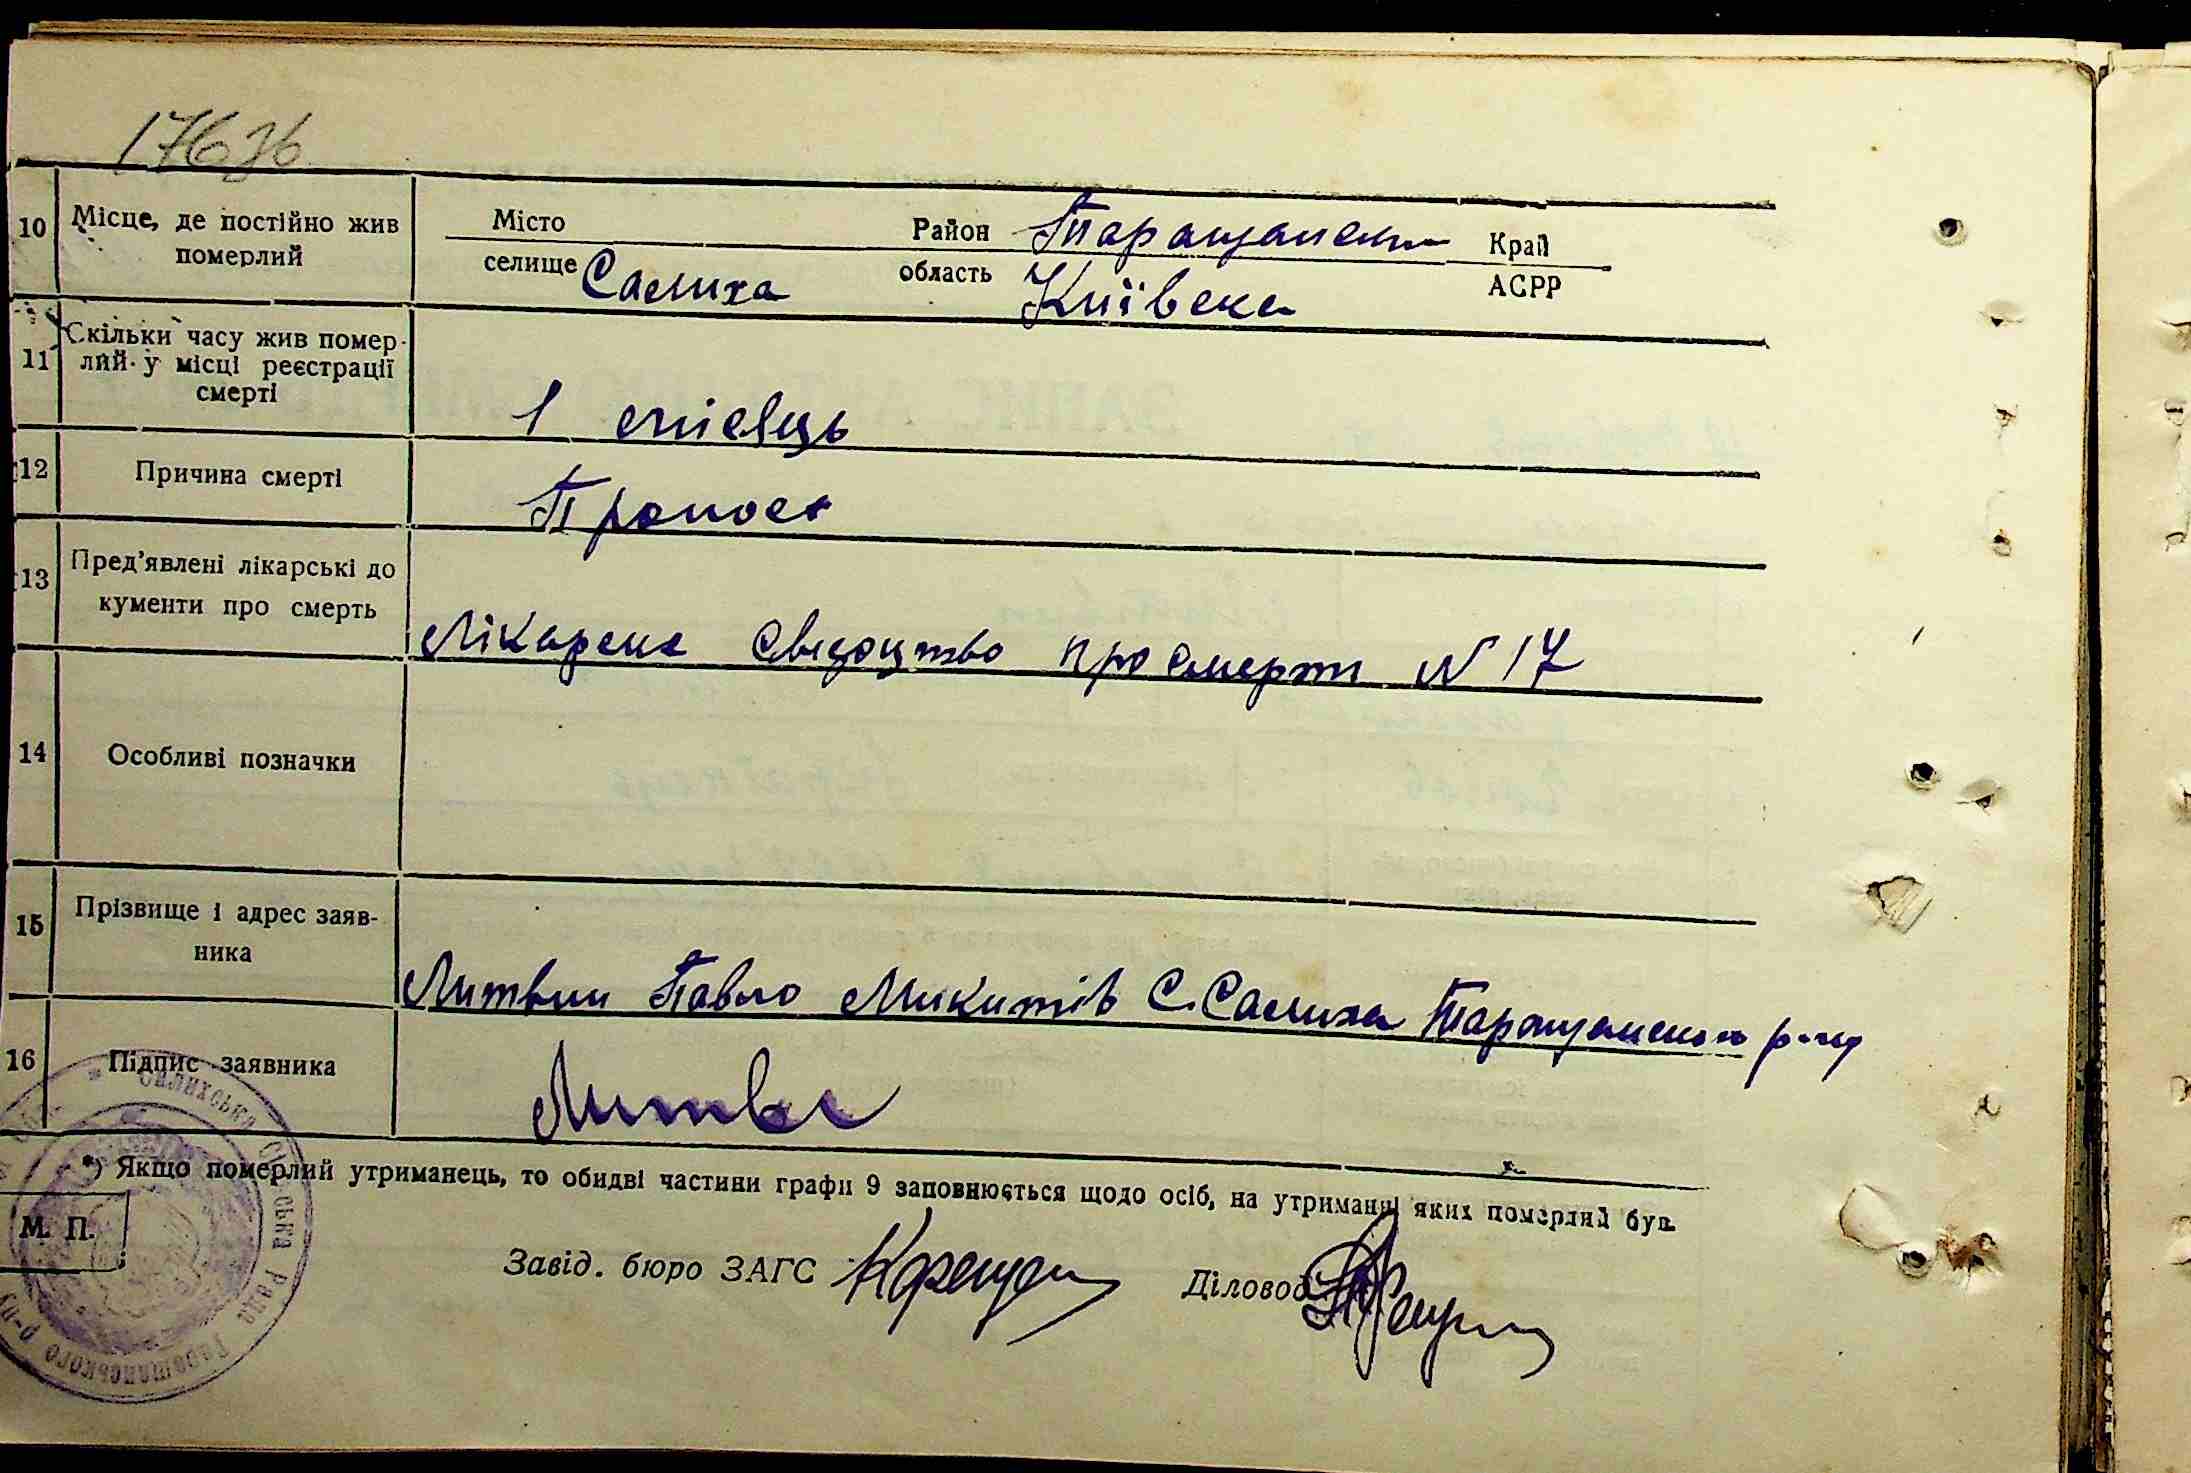 17636
10 Місце, де постійно жив померлий
Місто Район Таращанськ Край
селище Салиха область Київська АСРР
11 Скільки часу жив помер-
лий у місці реєстрації
смерті
1 місяць
12 Причина смерті
Пронос
13 Пред'явлені лікарські до
кументи про смерть
Лікарське свідоцтво про смерть N 17
14 Особливі позначки
15 Прізвище і адрес заяв-
ника
Литвин Павло Микитів С. Салиха Таращанського р-ну
16 Підпис заявника
Литве
*) Якщо померлий утриманець, то обидві частини графи 9 заповнюється щодо осіб, на утриманні яких померлий був.
М. П.
Завід. бюро ЗАГС
Діловод
Салихська Сільська Рада Таращанського р-ну